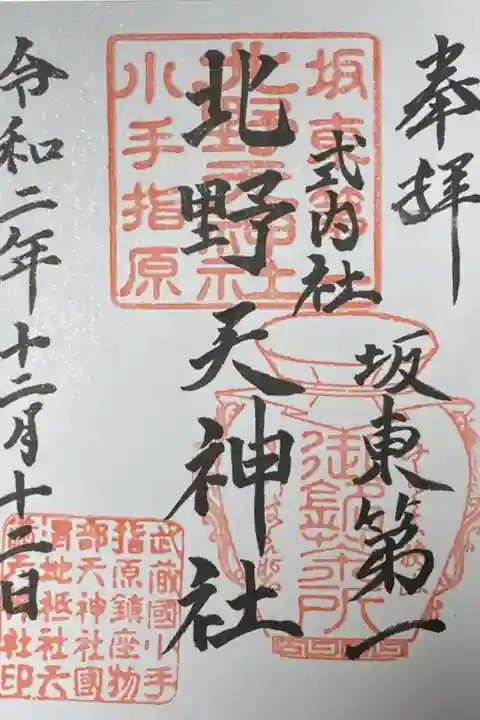 奉拝
式内社
坂東第一
北野天神社
令和二年十二月十二日
坂東第一
北野天神社
小手指原
武蔵國小手
指原鎮座物
部天神社國
渭地祇社天